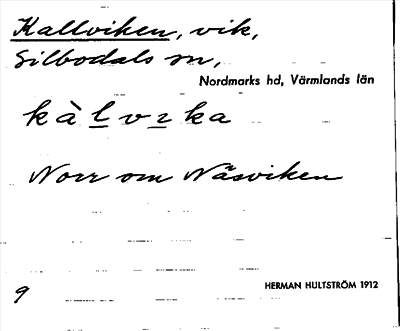 Kallviken, vik,
Silbodals sn,
Nordmarks hd, Värmlands län
kàlvıka
Norr om Näsviken
9
HERMAN HULTSTRÖM 1912